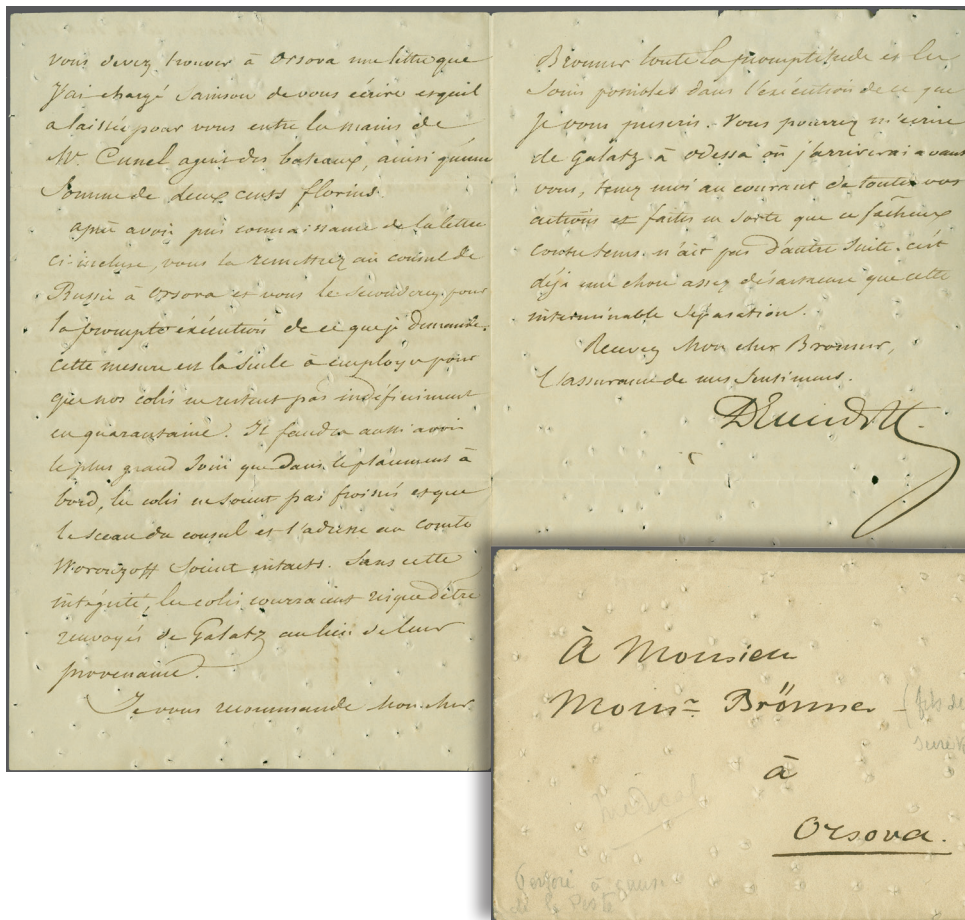 vous devez trouver à Orsova une lettre que
j'ai chargé Samson de vous écrire et qu'il
a laissée pour vous entre les mains de
Mr. Cunel agent des bateaux, ainsi qu'une
Somme de deux cents florins.
après avoir pris connaissance de la lettre
ci-incluse, vous la remettrez au consul de
Russie à Orsova et vous le seconderez pour
la prompte exécution de ce que je demande.
Cette mesure est la seule à employer pour
que nos colis ne restent pas indéfiniment
en quarantaine. Il faudra aussi avoir
le plus grand soin que dans le placement à
bord, les colis ne soient pas froissés et que
le sceau du consul et l'adresse au comte
Woronzoff soient intacts. Sans cette
intégrité, les colis courraient risque d'être
renvoyés de Galatz au lieu de leur
provenance.
Je vous recommande Mon cher
Bronner toute la promptitude et les
soins possibles dans l'exécution de ce que
je vous prescris. Vous pourrez m'écrire
de Galatz à Odessa où j'arriverai avant
vous, tenez moi au courant de toutes vos
actions et faites en sorte que ce fâcheux
contretems n'ait pas d'autre suite. c'est
déjà une chose assez désastreuse que cette
interminable séparation.
Recevez Mon cher Bronner,
l'assurance de mes sentimens.
Demidoff.
À Monsieur
Monsr. Brönner (fils de
à
Orsova.
médical
Perforé à cause
de la Peste